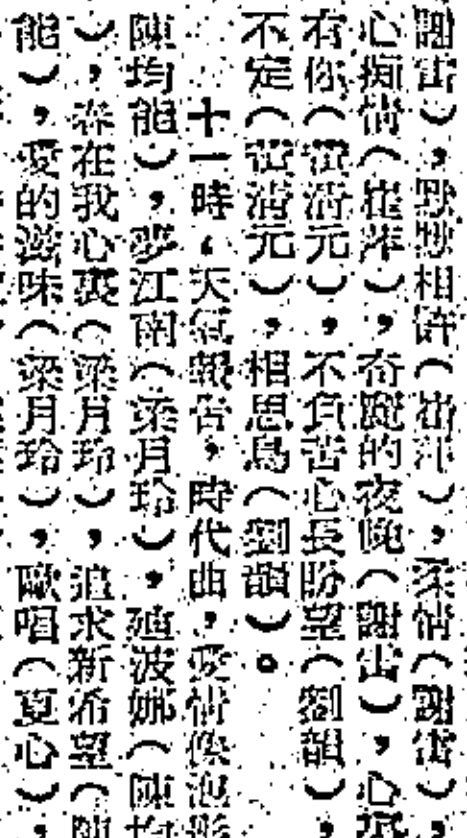 謝雷），默默相許（崔萍），柔情（謝雷），
心痴情（崔萍），奇癡的夜晚（謝雷），心
有你（雷清元），不負苦心長盼望（劉韻），
不定（雷清元），相思鳥（劉韻）。
十一時，天氣報告，時代曲，愛情像泡影
陳均能），夢江南（梁月玲），娜（陳均
），春在我心裏（梁月玲），追求新希望（陳
能），愛的滋味（梁月玲），歐唱（夏心），